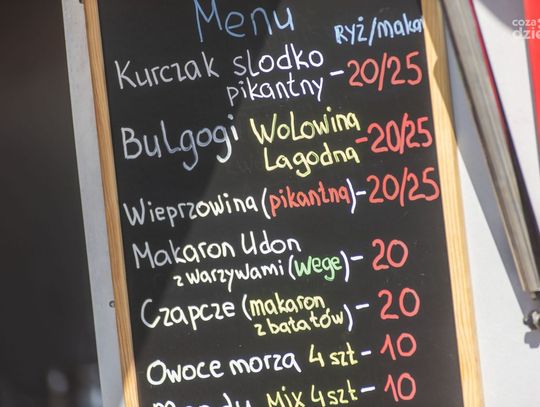 Menu
Ryż/makar
Kurczak słodko
pikantny - 20/25
Bulgogi Wołowina
Łagodna - 20/25
Wieprzowina (pikantna) - 20/25
Makaron Udon
z warzywami (wege) - 20
Czapcze (makaron
z batatów) - 20
Owoce morza 4 szt - 10
Mix 4szt - 10
coza
dzień